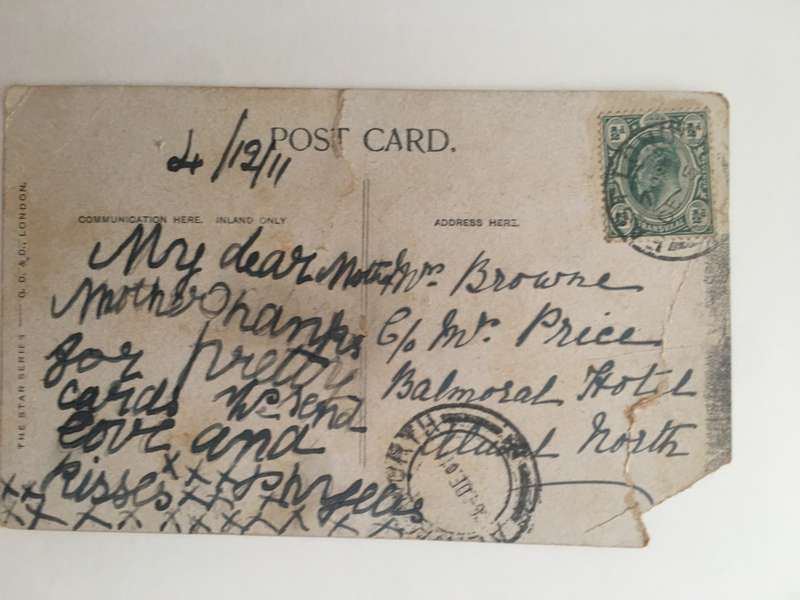 POST CARD.
4/12/11
COMMUNICATION HERE. INLAND ONLY
ADDRESS HERE.
THE STAR SERIES — G. D. & D., LONDON.
My dear
Mother thanks
for pretty
cards we send
love and
kisses
Mrs. Browne
C/o Mr. Price
Balmoral Hotel
North
TRANSVAAL